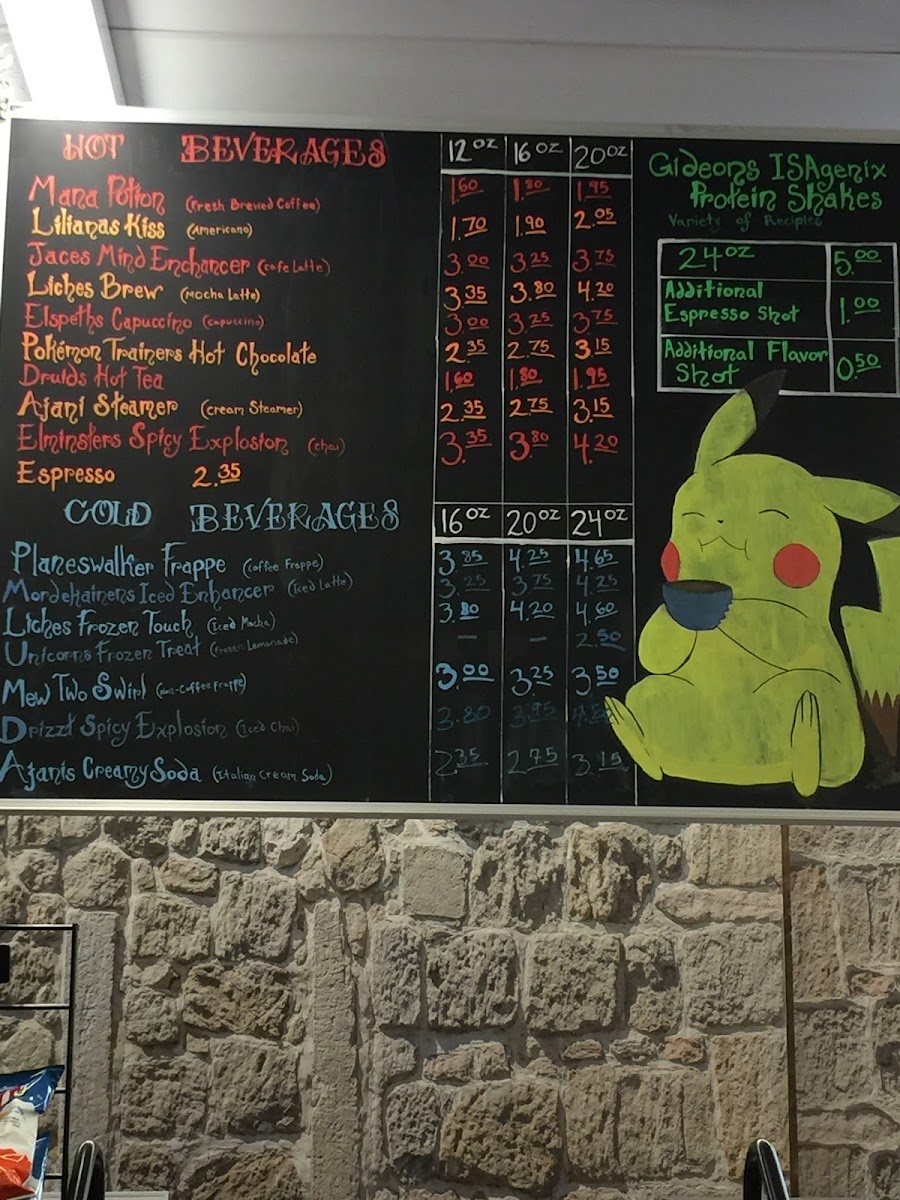 HOT BEVERAGES 12oz 16oz 20oz
Mana Potion (Fresh Brewed Coffee) 1.60 1.80 1.95
Lilianas Kiss (Americano) 1.70 1.90 2.05
Jaces Mind Enchancer (cafe Latte) 3.00 3.25 3.75
Liches Brew (Mocha Latte) 3.35 3.80 4.20
Elspeths Capuccino (capuccino) 3.00 3.25 3.75
Pokémon Trainers Hot Chocolate 2.35 2.75 3.15
Druids Hot Tea 1.60 1.80 1.95
Ajani Steamer (cream Steamer) 2.35 2.75 3.15
Elminsters Spicy Explosion (chai) 3.35 3.80 4.20
Espresso 2.35
COLD BEVERAGES 16oz 20oz 24oz
Planeswalker Frappe (Coffee Frappe) 3.85 4.25 4.65
Mordekainens Iced Enhancer (Iced Latte) 3.25 3.75 4.25
Liches Frozen Touch (Iced Mocha) 3.80 4.20 4.60
Unicorns Frozen Treat (Frozen Lemonade) - - 2.50
Mew Two Swirl (Non-Coffee Frappe) 3.00 3.25 3.50
Drizzt Spicy Explosion (Iced Chai) 3.80 3.95
Ajanis Creamy Soda (Italian Cream Soda) 2.35 2.75 3.15
Gideons ISAgenix
Protein Shakes
Variety of Recipies
24oz 5.00
Additional
Espresso Shot 1.00
Additional Flavor
Shot 0.50